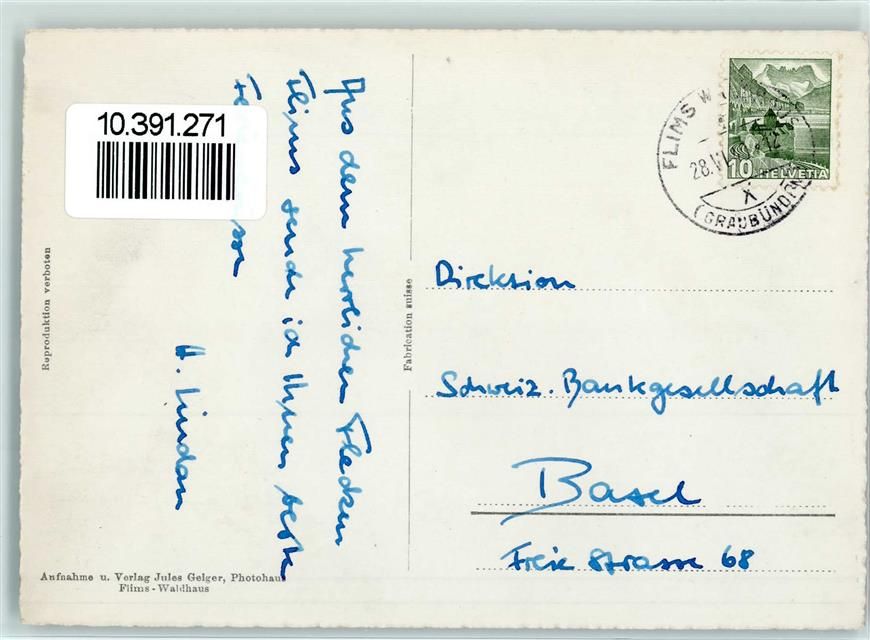 10.391.271
Aus dem herrlichen Flecken
Flims sende ich Ihnen beste
H. Lindau
Reproduktion verboten
Aufnahme u. Verlag Jules Geiger, Photohau
Flims-Waldhaus
Fabrication suisse
FLIMS W
28.VI
(GRAUBÜNDEN)
10 HELVETIA
Direktion
Schweiz. Bankgesellschaft
Basel
Freie Strasse 68